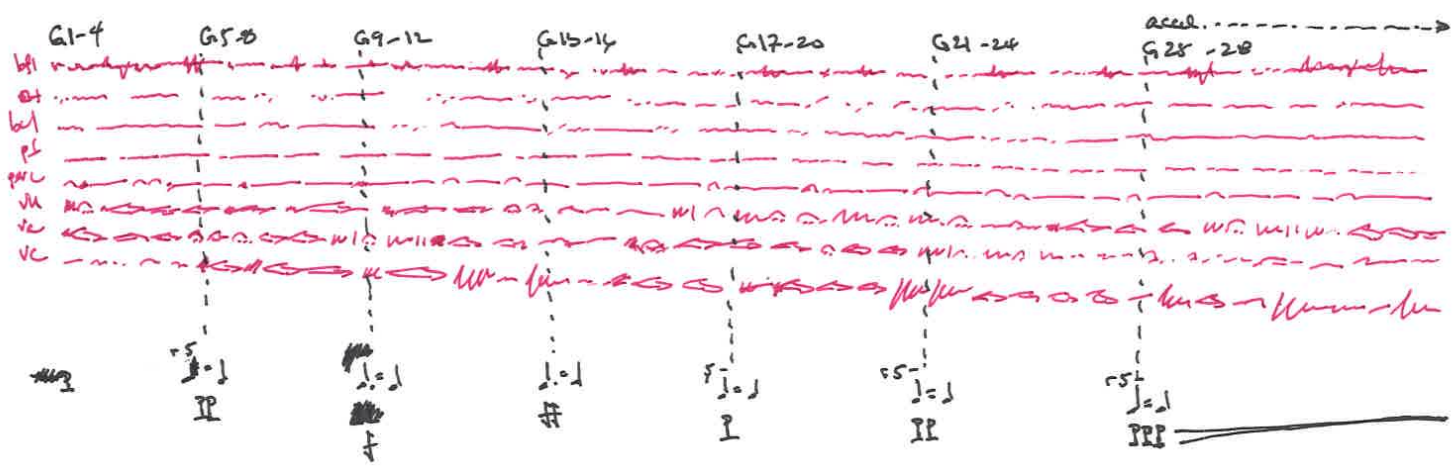 accel.
G1-4 G5-8 G9-12 G13-16 G17-20 G21-24 G25-28
bfl
bcl
pf
perc
vn
va
vc
5 5 5 5
♩.=♩ ♩.=♩ ♩=♩ ♩=♩ ♩=♩
p pp f ff p pp ppp